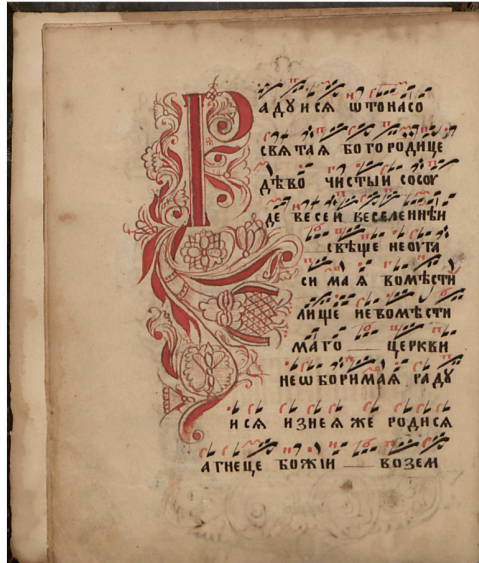 Радꙋисѧ ѡтонасо
свѧтаѧ богородице
дѣво чистыи сосоꙋ
де всеѝ веселеннѣи
свѣще неоуга
симаѧ вомѣсти
лище невомѣсти
маго церкви
неѡборимаѧ радꙋ
исѧ изнеѧже родисѧ
агнеце божїи возем